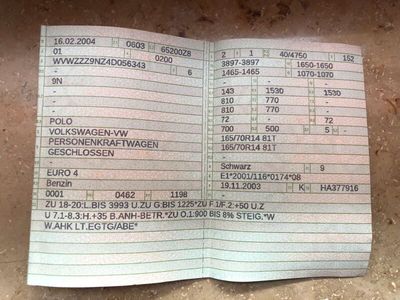 16.02.2004 0603 65200Z8
01 0200
WVWZZZ9NZ4D056343 6
-
9N
-
-
POLO
VOLKSWAGEN-VW
PERSONENKRAFTWAGEN
GESCHLOSSEN
-
EURO 4
Benzin
0001 0462 1198
2 1 40/4750 152
3897-3897 1650-1650
1465-1465 1070-1070
- - -
143 1530 1530
810 770 -
810 770 -
72 - 72
700 500 5 -
165/70R14 81T
165/70R14 81T
-
Schwarz 9
E1*2001/116*0174*08
19.11.2003 K HA377916
ZU 18-20:L.BIS 3993 U.ZU G:BIS 1225*ZU F.1/F.2:+50 U.Z
U 7.1-8.3:H.+35 B.ANH-BETR.*ZU O.1:900 BIS 8% STEIG.*W
W.AHK LT.EGTG/ABE*